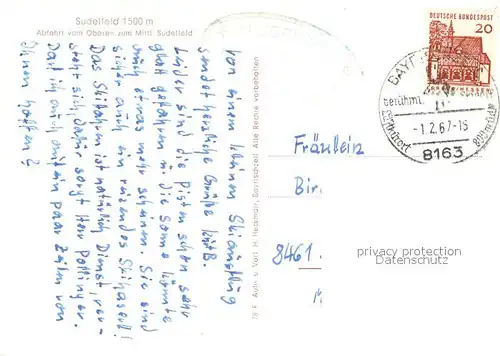 Sudelfeld 1500 m
Abfahrt vom Oberen zum Mittl. Sudelfeld
Von einem kleinen Skiausflug
sendet herzliche Grüße
Leider sind die Pisten schon sehr
glatt gefahren u. die Sonne könnte
auch etwas mehr scheinen. Sie sind
sicher auch ein reizendes Skihaserl!
Das Skifahren ist natürlich Dienst, ver-
steht sich, dafür sorgt Herr Pollinger.
Darf ich auch mit ein paar Zeilen von
Ihnen hoffen?
78 F. Aufn. u. Verl. H. Heidsmair, Bayrischzell Alle Rechte vorbehalten
DEUTSCHE BUNDESPOST
20
BAYR
berühmt.
-1.2.67-15
800 m
8163
Fräulein
Bir.
8461
privacy protection
Datenschutz